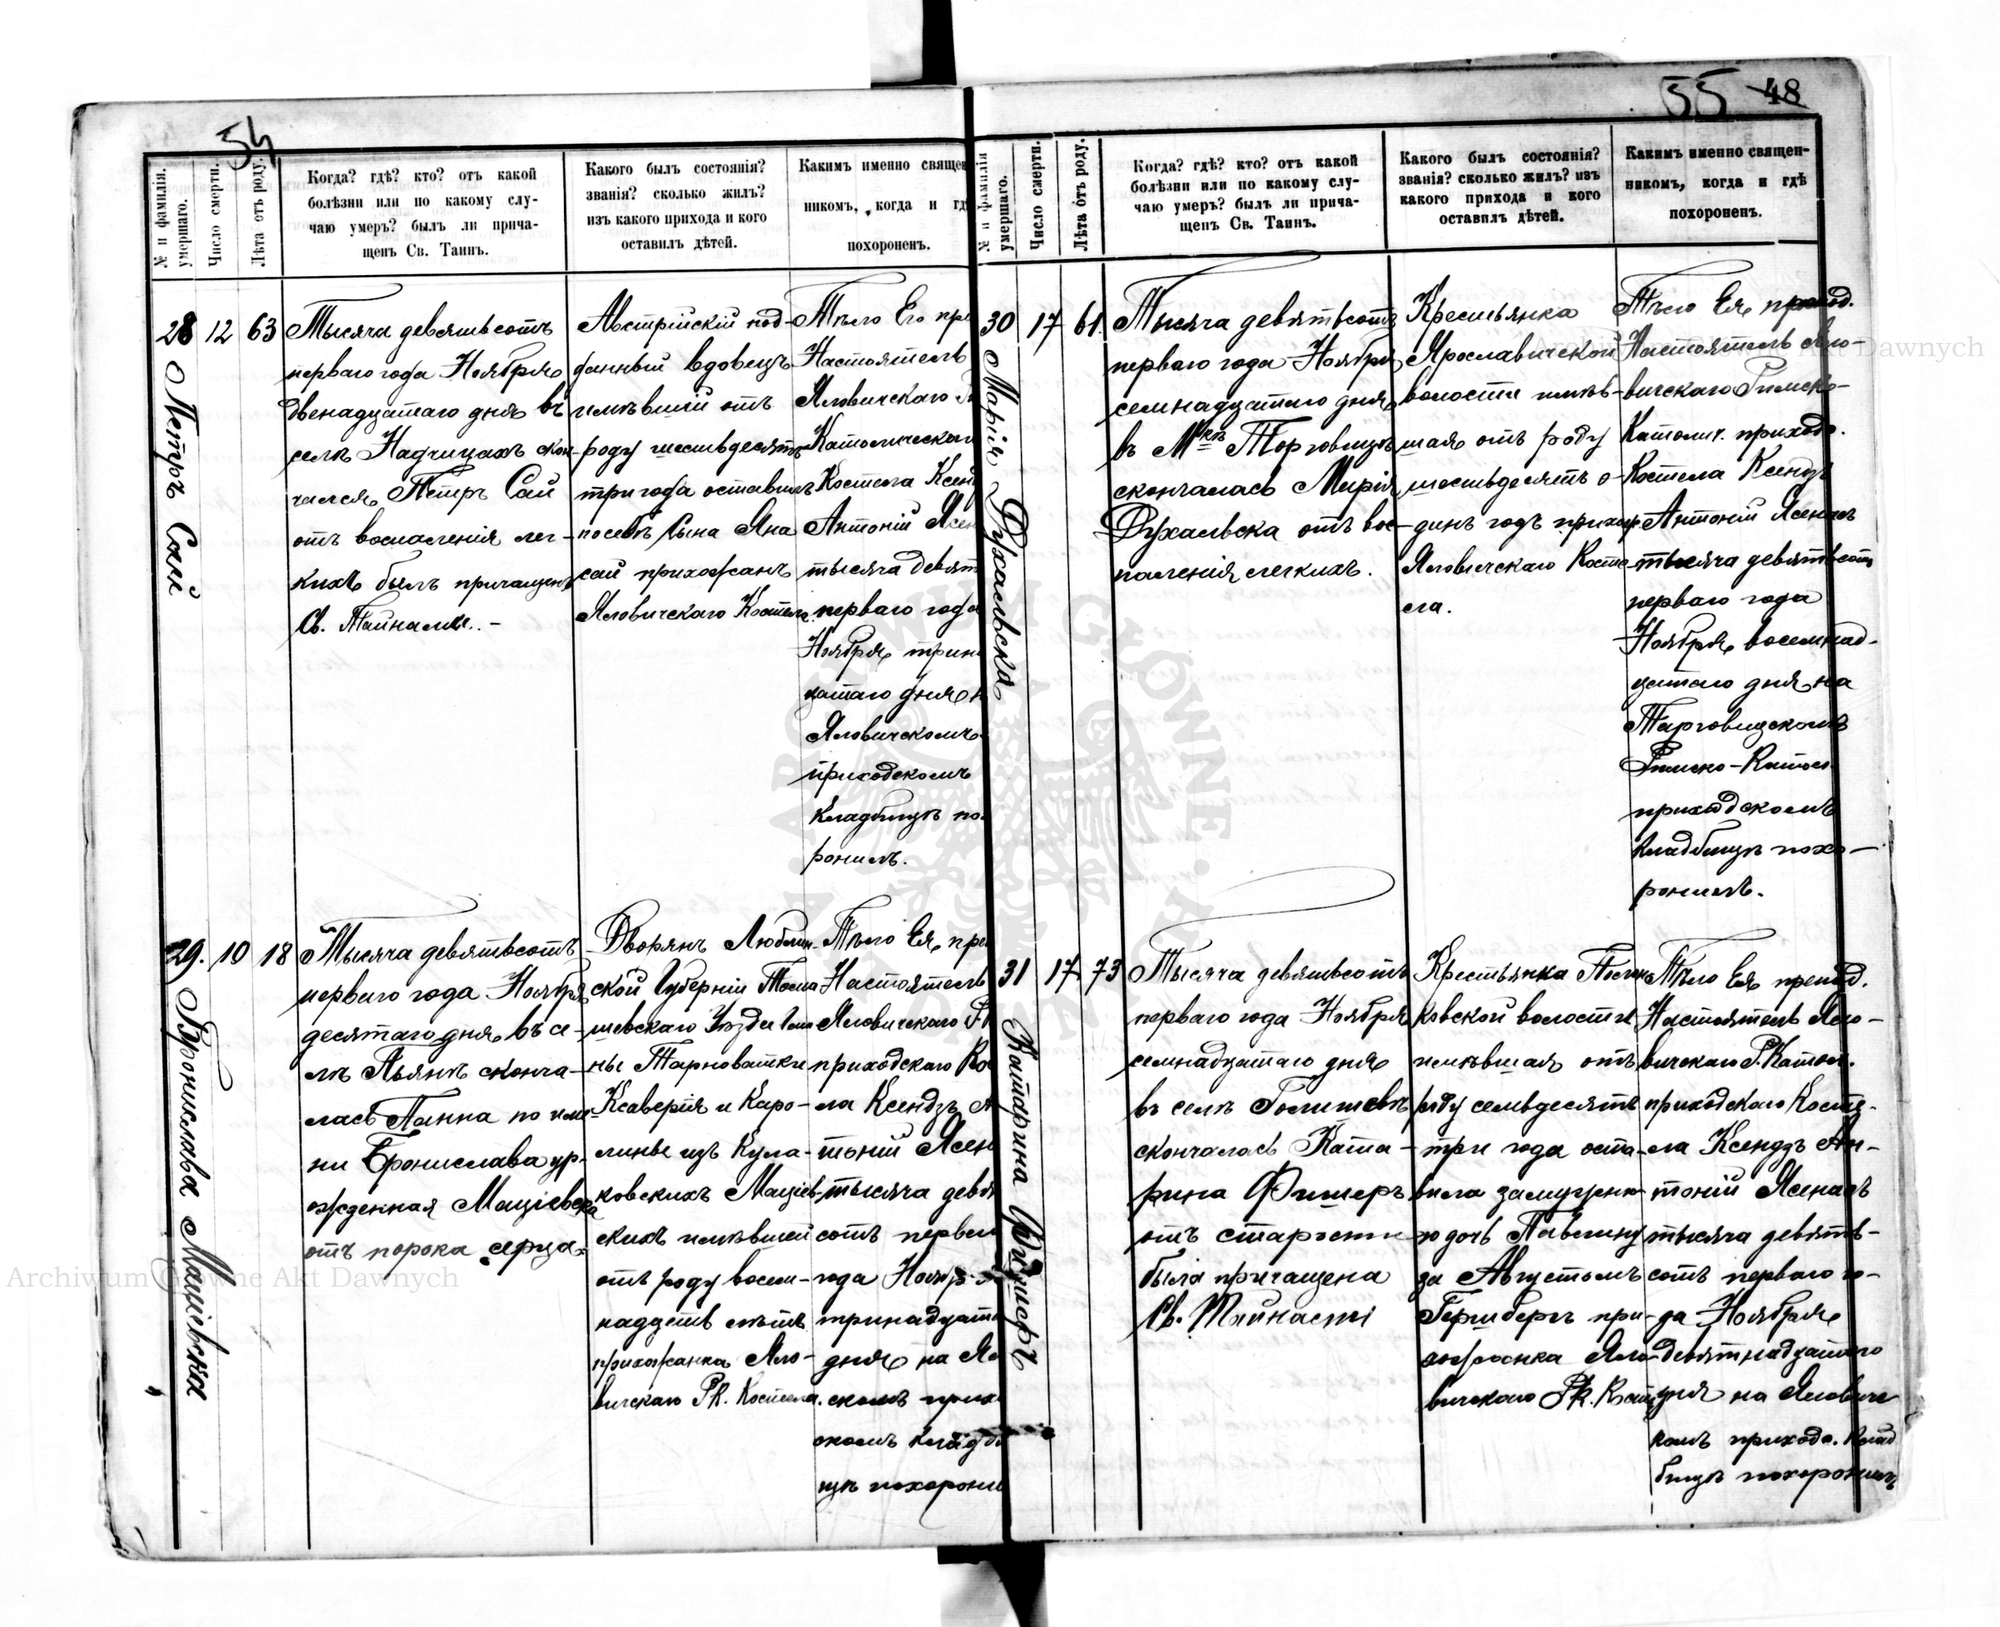 54
№ и фамилія умершаго.
Число смерти.
Лѣта отъ роду.
Когда? гдѣ? кто? отъ какой
болѣзни или по какому слу-
чаю умеръ? былъ ли прича-
щенъ Св. Таинъ.
Какого былъ состоянія?
званія? сколько жилъ?
изъ какого прихода и кого
оставилъ дѣтей.
Какимъ именно священ
никомъ, когда и гд
похороненъ.
28
Петръ Сай
12
63
Тысяча девятьсотъ
перваго года Ноября
двенадцатаго дня въ
селѣ Надчицахъ скон-
чался Петръ Сай
отъ воспаленія лег-
кихъ былъ причащенъ
Св. Тайнами. -
Австрійскій под-
данный вдовецъ
имѣвшій отъ
роду шестьдесятъ
три года оставилъ
по себѣ сына Яна
Сай прихожанъ
Яловичскаго Костела.
Тѣло Его пр
Настоятель
Яловичскаго
Католическаго
Костела Ксенд
Антоній Ясен
тысяча девят
перваго года
Ноября трин
цатаго дня н
Яловичскомъ
приходскомъ
кладбищѣ по
ронилъ.
29.
Брониславва Маціевска
10
18
Тысяча девятьсотъ
перваго года Ноября
десятаго дня въ се-
лѣ Пьянѣ сконча-
лась Панна по име
ни Бронислава ур-
ожденная Маціевска
отъ порока серца.
Дворянъ Люблин-
ской Губерніи Тома
шевскаго Уѣзда Гми
ны Тарноватки
Ксаверія и Каро-
лины изъ Кула-
ковскихъ Маціев-
скихъ имѣвшей
отъ роду восем-
надцать лѣтъ
прихожанка Яло-
вичскаго Рк. Костела.
Тѣло Ея пре
Настоятель
Яловичскаго Р
приходскаго Кос
ла Ксендзъ А
тоній Ясен
тысяча девя
сотъ перваго
года Ноября
тринадцата
дня на Яло
скомъ прихо
скомъ кладби
щѣ похорони
55 48
№ и фамилія умершаго.
Число смерти.
Лѣта отъ роду.
Когда? гдѣ? кто? отъ какой
болѣзни или по какому слу-
чаю умеръ? былъ ли прича-
щенъ Св. Таинъ.
Какого былъ состоянія?
званія? сколько жилъ? изъ
какого прихода и кого
оставилъ дѣтей.
Какимъ именно священ-
никомъ, когда и гдѣ
похороненъ.
30
Марія Духальвска
17
61
Тысяча девятьсотъ
перваго года Ноября
семнадцатаго дня
въ Мкѣ Торговицѣ
скончалась Марія
Духальвска отъ вос-
паленія легкихъ.
Крестьянка
Ярославичской
волости имѣв-
шая отъ роду
шестьдесятъ о-
динъ годъ прихож
Яловичскаго Косте-
ла.
Тѣло Ея препод.
Настоятель Яло-
вичскаго Римско-
Католич. приходс.
Костела Ксендзъ
Антоній Ясенасъ
тысяча девятьсотъ
перваго года
Ноября восемнад-
цатаго дня на
Тарговицскомъ
Римско-Катол.
приходскомъ
кладбищѣ похо-
ронилъ.
31
Катарина Фишеръ
17
73
Тысяча девятьсотъ
перваго года Ноября
семнадцатаго дня
въ селѣ Голишевѣ
скончалась Ката-
рина Фишеръ
отъ старости
была причащена
Св. Тайнами
Крестьянка
ковской волости
имѣвшая отъ
роду семьдесятъ
три года оста-
вила замужню-
ю дочь Павлину
за Августомъ
Гершбергъ при-
хожанка Яло-
вичскаго Рк. Кост
Тѣло Ея препод.
Настоятель Яло-
вичскаго Р. Катол.
приходскаго Косте-
ла Ксендзъ Ан-
тоній Ясенасъ
тысяча девять-
сотъ перваго го-
да Ноября
девятнадцатаго
дня на Яловичс
комъ приходс. клад
бищѣ похоронилъ
Archiwum Główne Akt Dawnych
Archiwum Główne Akt Dawnych